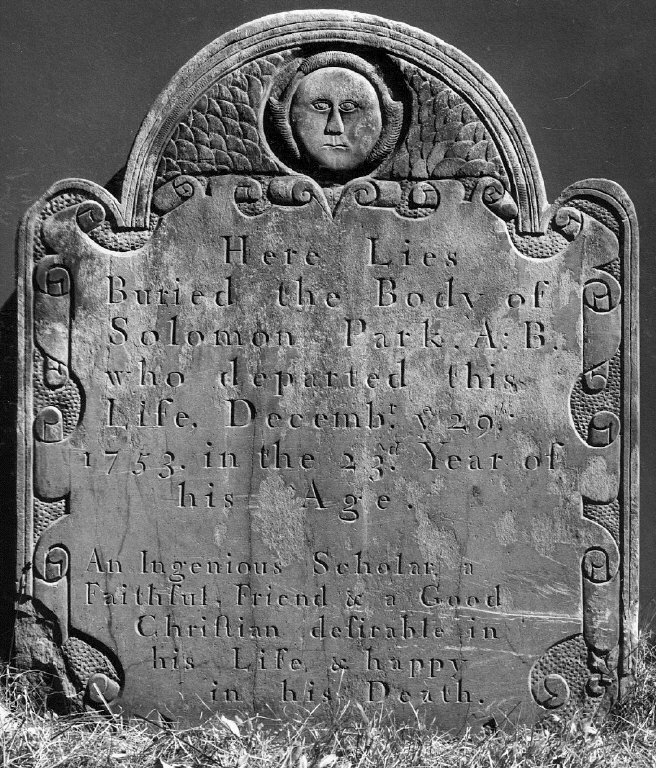 Here Lies
Buried the Body of
Solomon Park. A: B.
who departed this
Life, Decembʳ. yᵉ 29ᵗʰ.
1753. in the 23ʳᵈ. Year of
his Age.
An Ingenious Scholar, a
Faithful, Friend & a Good
Chriſtian deſirable in
his Life, & happy
in his Death.